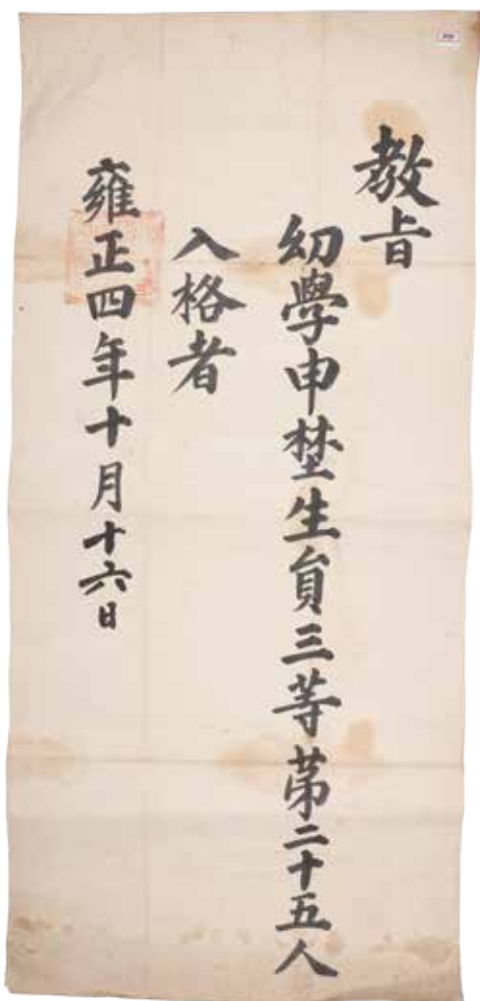 教旨
幼學申埜生員三等第二十五人
入格者
雍正四年十月十六日